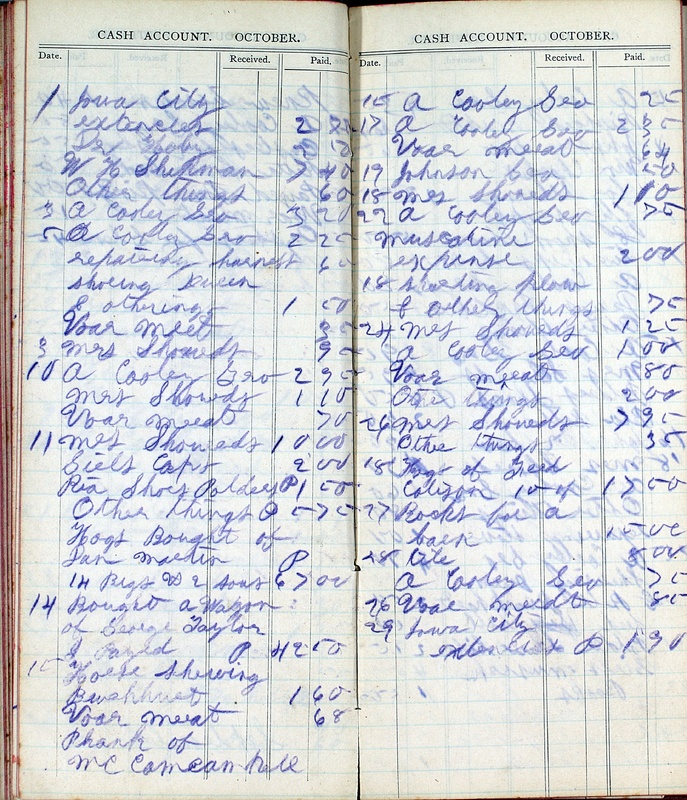 CASH ACCOUNT. OCTOBER.
Date. Received. Paid.
1 Iowa City
extencies 2
Dr
W H Shellman 7 40
Other things 60
3 A Cooley Geo 3 20
5 A Cooley Geo 2 25
repairing harnest 60
shoeing Queen
& otherings 1 50
Voar meet
3 mrs Showeds 95
10 A Cooley Geo 2 95
mrs Showeds 1 10
Voar meat 70
11 mrs Showeds 10 00
Caps 2 00
Shoes P 1 50
Other things P 5 75
Hogs Bought of
Martin P
14 Pigs & 2 sows 67 00
14 Bought a Wagon
of George Taylor
I Payed P 42 50
15 Horse Shewing
1 60
Voar meat 68
of
Mc
CASH ACCOUNT. OCTOBER.
Date. Received. Paid.
15 A Cooley Geo 25
17 A Cooley Geo 2 35
Voar meat 64
19 Johnson Geo 50
18 mrs Showeds 1 10
22 A Cooley Geo 75
muscatine
expense 2 00
18 plow
& other things 75
24 mrs Showeds 1 25
A Cooley Geo 1 00
Voar meat 80
Othe things 2 00
26 mrs Showeds 7 95
Othe things 35
18 of Seed
10 of 17 00
27 Rocks for a
15 00
28 8 00
A Cooley Geo 75
26 Voar meat 85
29 Iowa City
P 1 90